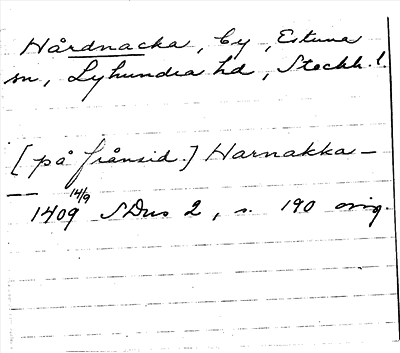 Hårdnacka, by, Estuna
sn, Lyhundra hd, Stockh. l.
[på frånsid.] Harnakka —
— 14/9
1409 SDns 2, s. 190 orig.